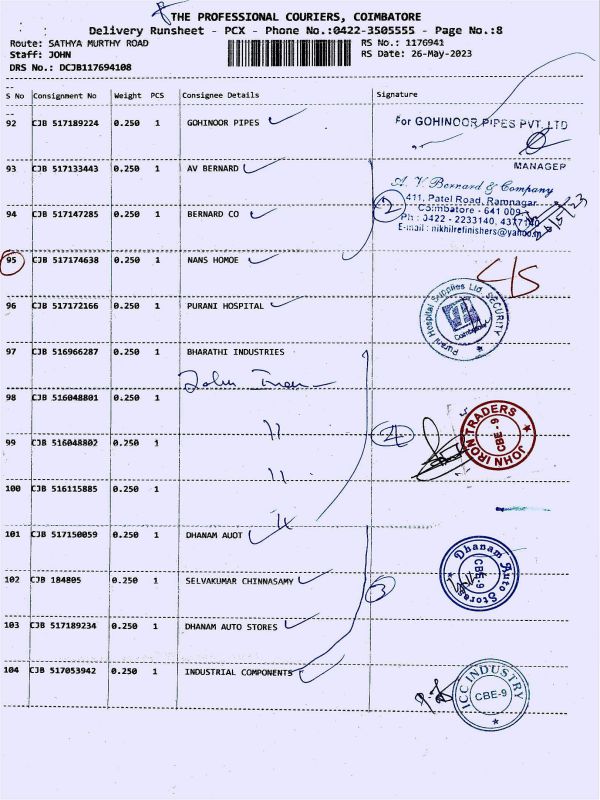 THE PROFESSIONAL COURIERS, COIMBATORE
Delivery Runsheet - PCX - Phone No.:0422-3505555 - Page No.:8
Route: SATHYA MURTHY ROAD
RS No.: 1176941
Staff: JOHN
RS Date: 26-May-2023
DRS No.: DCJB117694108
S No Consignment No Weight PCS Consignee Details Signature
92 CJB 517189224 0.250 1 GOHINOOR PIPES
For GOHINOOR PIPES PVT. LTD
MANAGER
93 CJB 517133443 0.250 1 AV BERNARD
A. V. Bernard & Company
411, Patel Road, Ramnagar
Coimbatore - 641 009
Ph : 0422 - 2233140, 4377140
E-mail : nikhilrefinishers@yahoo.in
26/5/23
2
94 CJB 517147285 0.250 1 BERNARD CO
95 CJB 517174638 0.250 1 NANS HOMOE
C/S
96 CJB 517172166 0.250 1 PURANI HOSPITAL
Purani Hospital Supplies Ltd. SECURITY
Coimbatore
97 CJB 516966287 0.250 1 BHARATHI INDUSTRIES
John Iron
98 CJB 516048801 0.250 1
99 CJB 516048802 0.250 1
4
JOHN IRON TRADERS
CBE - 9
100 CJB 516115885 0.250 1
101 CJB 517150059 0.250 1 DHANAM AUOT
Dhanam Auto Stores
CBE-9
102 CJB 184805 0.250 1 SELVAKUMAR CHINNASAMY
3
103 CJB 517189234 0.250 1 DHANAM AUTO STORES
104 CJB 517053942 0.250 1 INDUSTRIAL COMPONENTS
ICC INDUSTRY
CBE-9